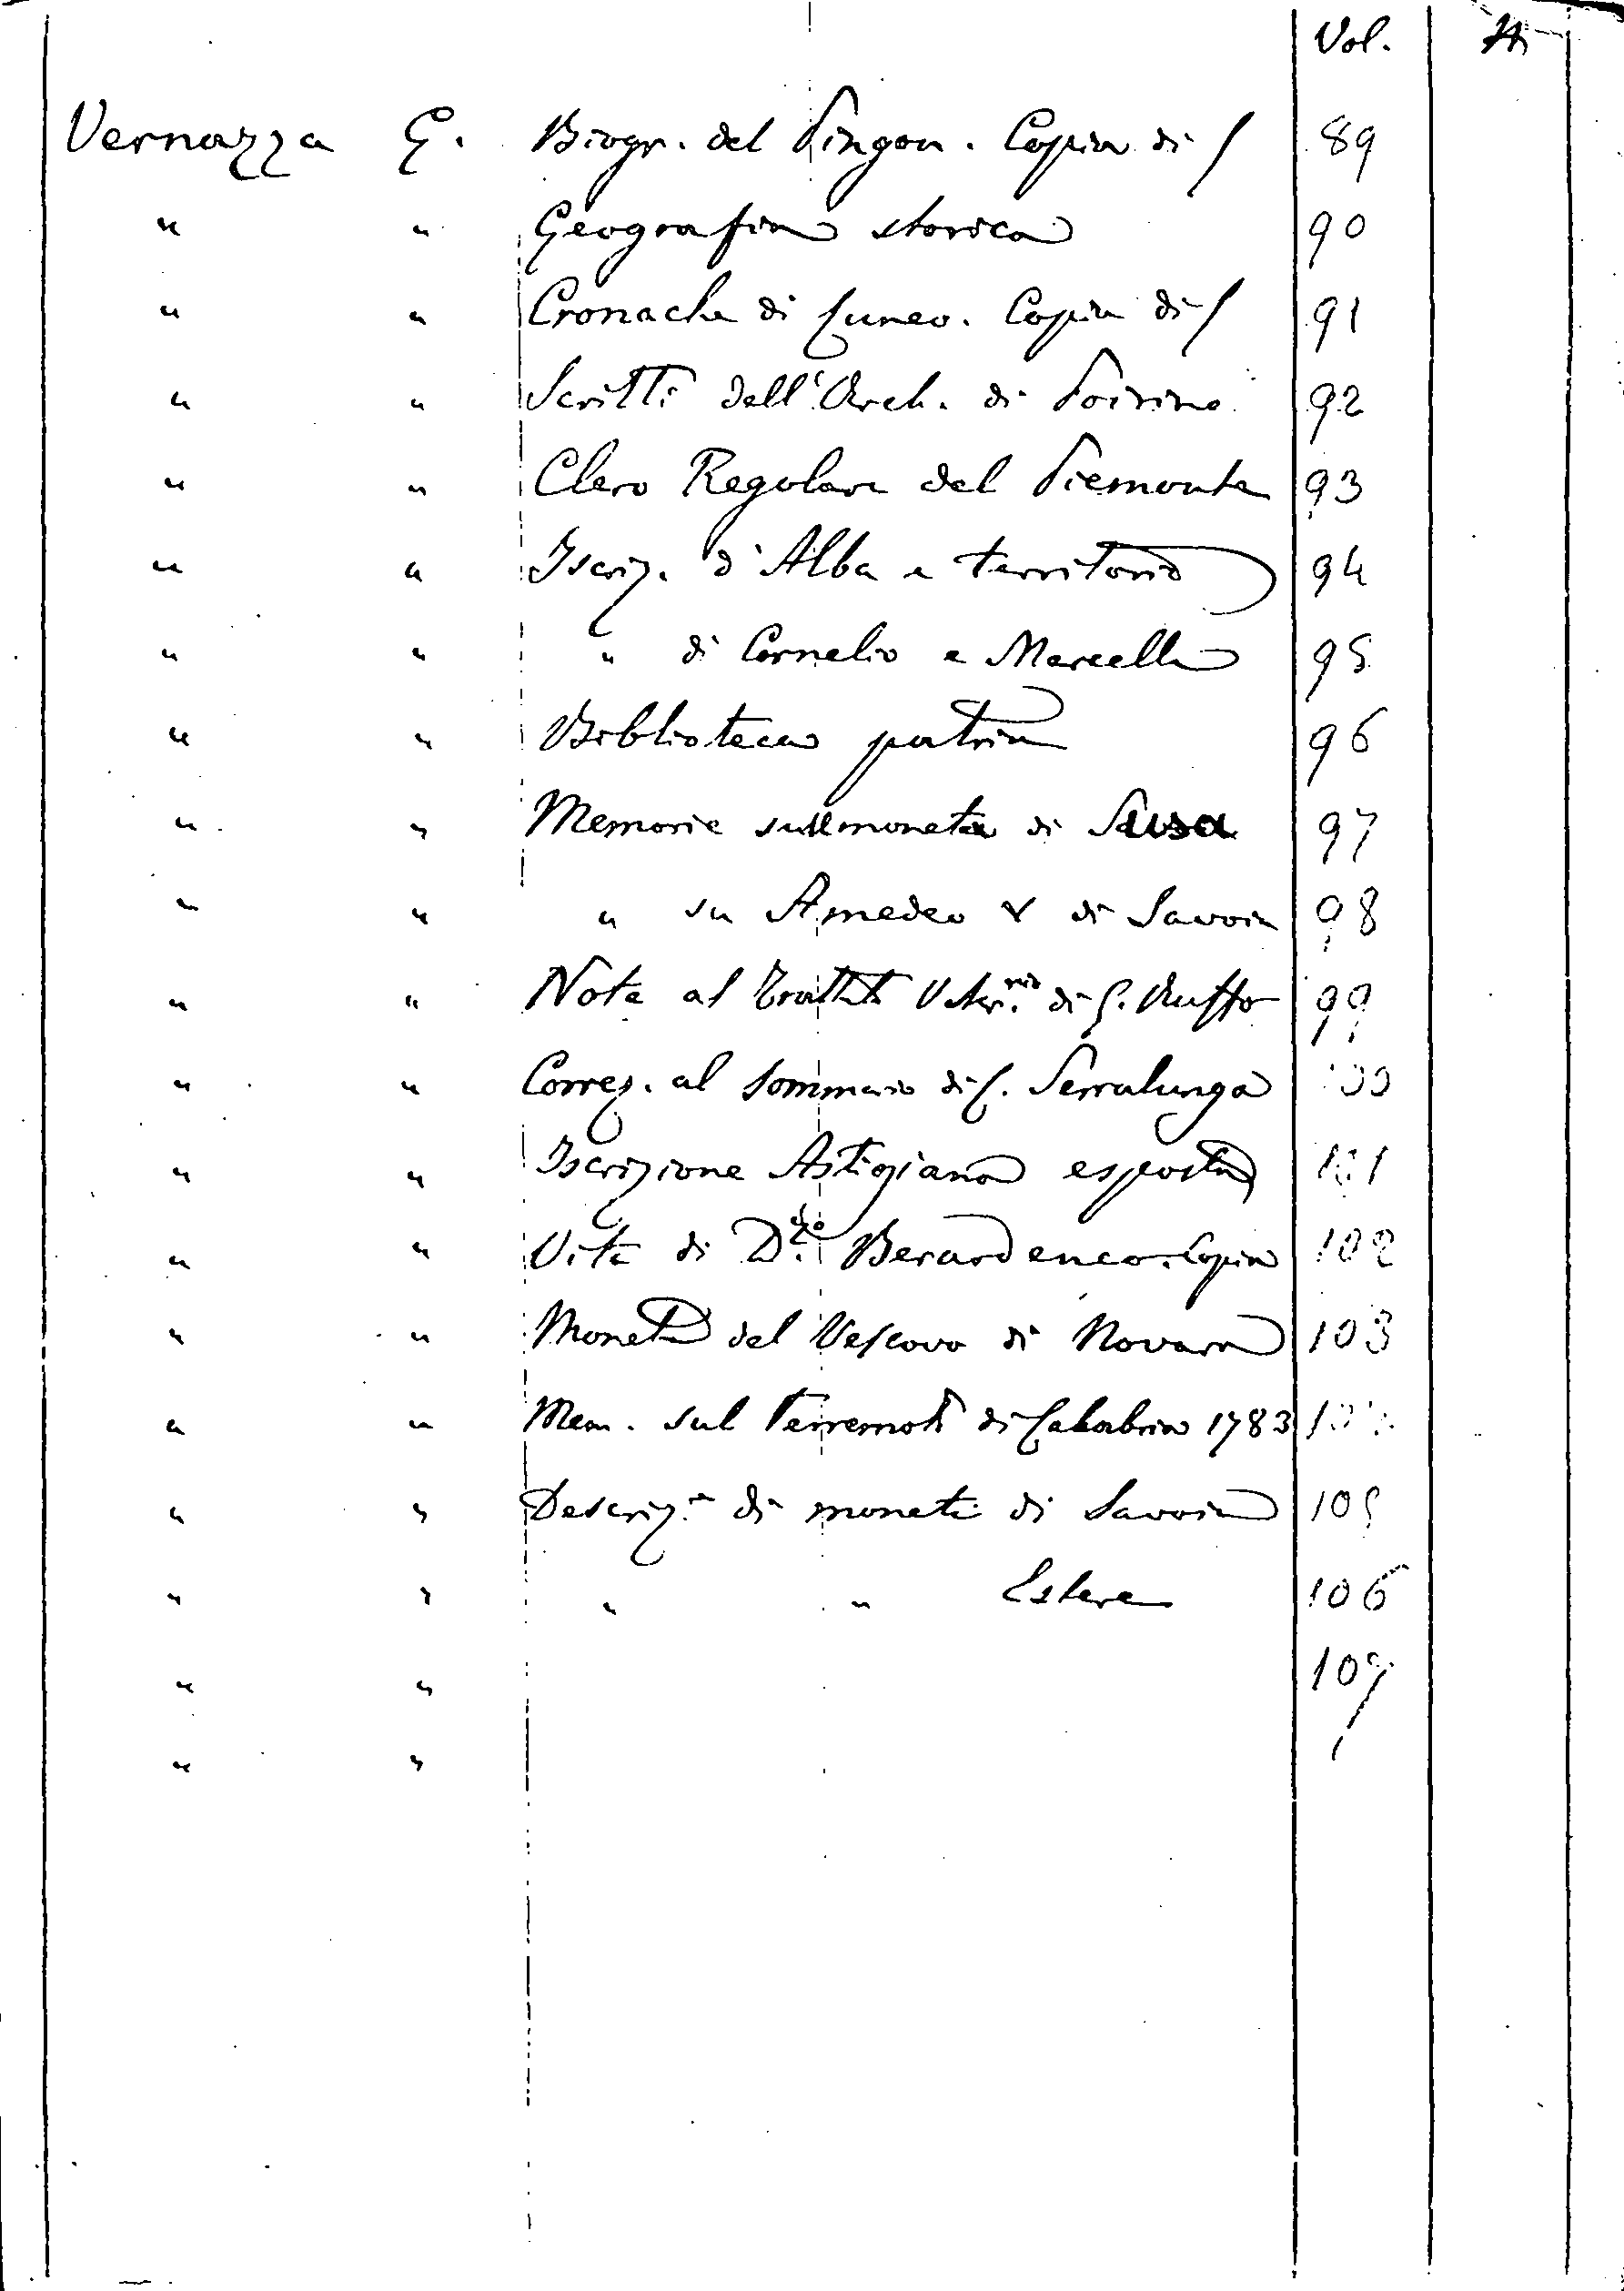 Vol.
Vernazza E. Biogr. del Pingon. Copia di / 89
" " Geografia storica 90
" " Cronache di Cuneo. Copia di / 91
" " Scritti dell'Arch. di Poirino 92
" " Clero Regolare del Piemonte 93
" " Iscriz. d'Alba e territorio 94
" " " di Cornelio e Marcella 95
" " Biblioteca patria 96
" " Memorie sull moneta di Susa 97
" " " su Amedeo V di Savoia 98
" " Note al Trattato Veter.rio di G. Ruffo 99
" " Correz. al Sommario di C. Serralunga 100
" " Iscrizione Astigiana esposta 101
" " Vita di Berardenco. Copia 102
" " Moneta del Vescovo di Novara 103
" " Mem. sul Terremoto di Calabria 1783
" " Descriz.e di monete di Savoia 105
" " " " Estere 106
" " 107
" "